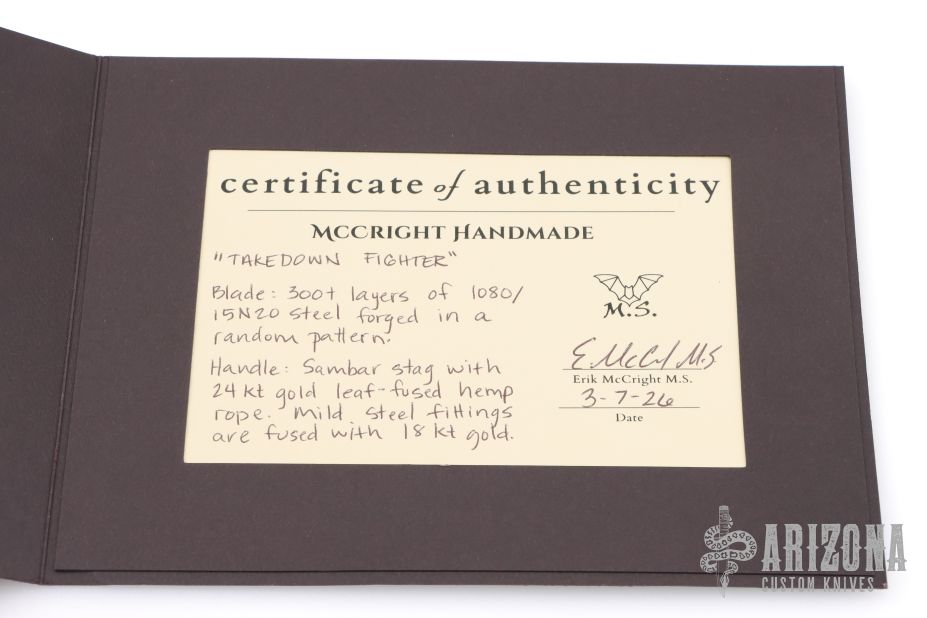 certificate of authenticity
McCright Handmade
"TAKEDOWN FIGHTER"
Blade: 300+ layers of 1080/
15N20 steel forged in a
random pattern.
Handle: Sambar stag with
24 kt gold leaf-fused hemp
rope. Mild steel fittings
are fused with 18 kt gold.
M.S.
E. McC M.S.
Erik McCright M.S.
3-7-26
Date
ARIZONA
CUSTOM KNIVES